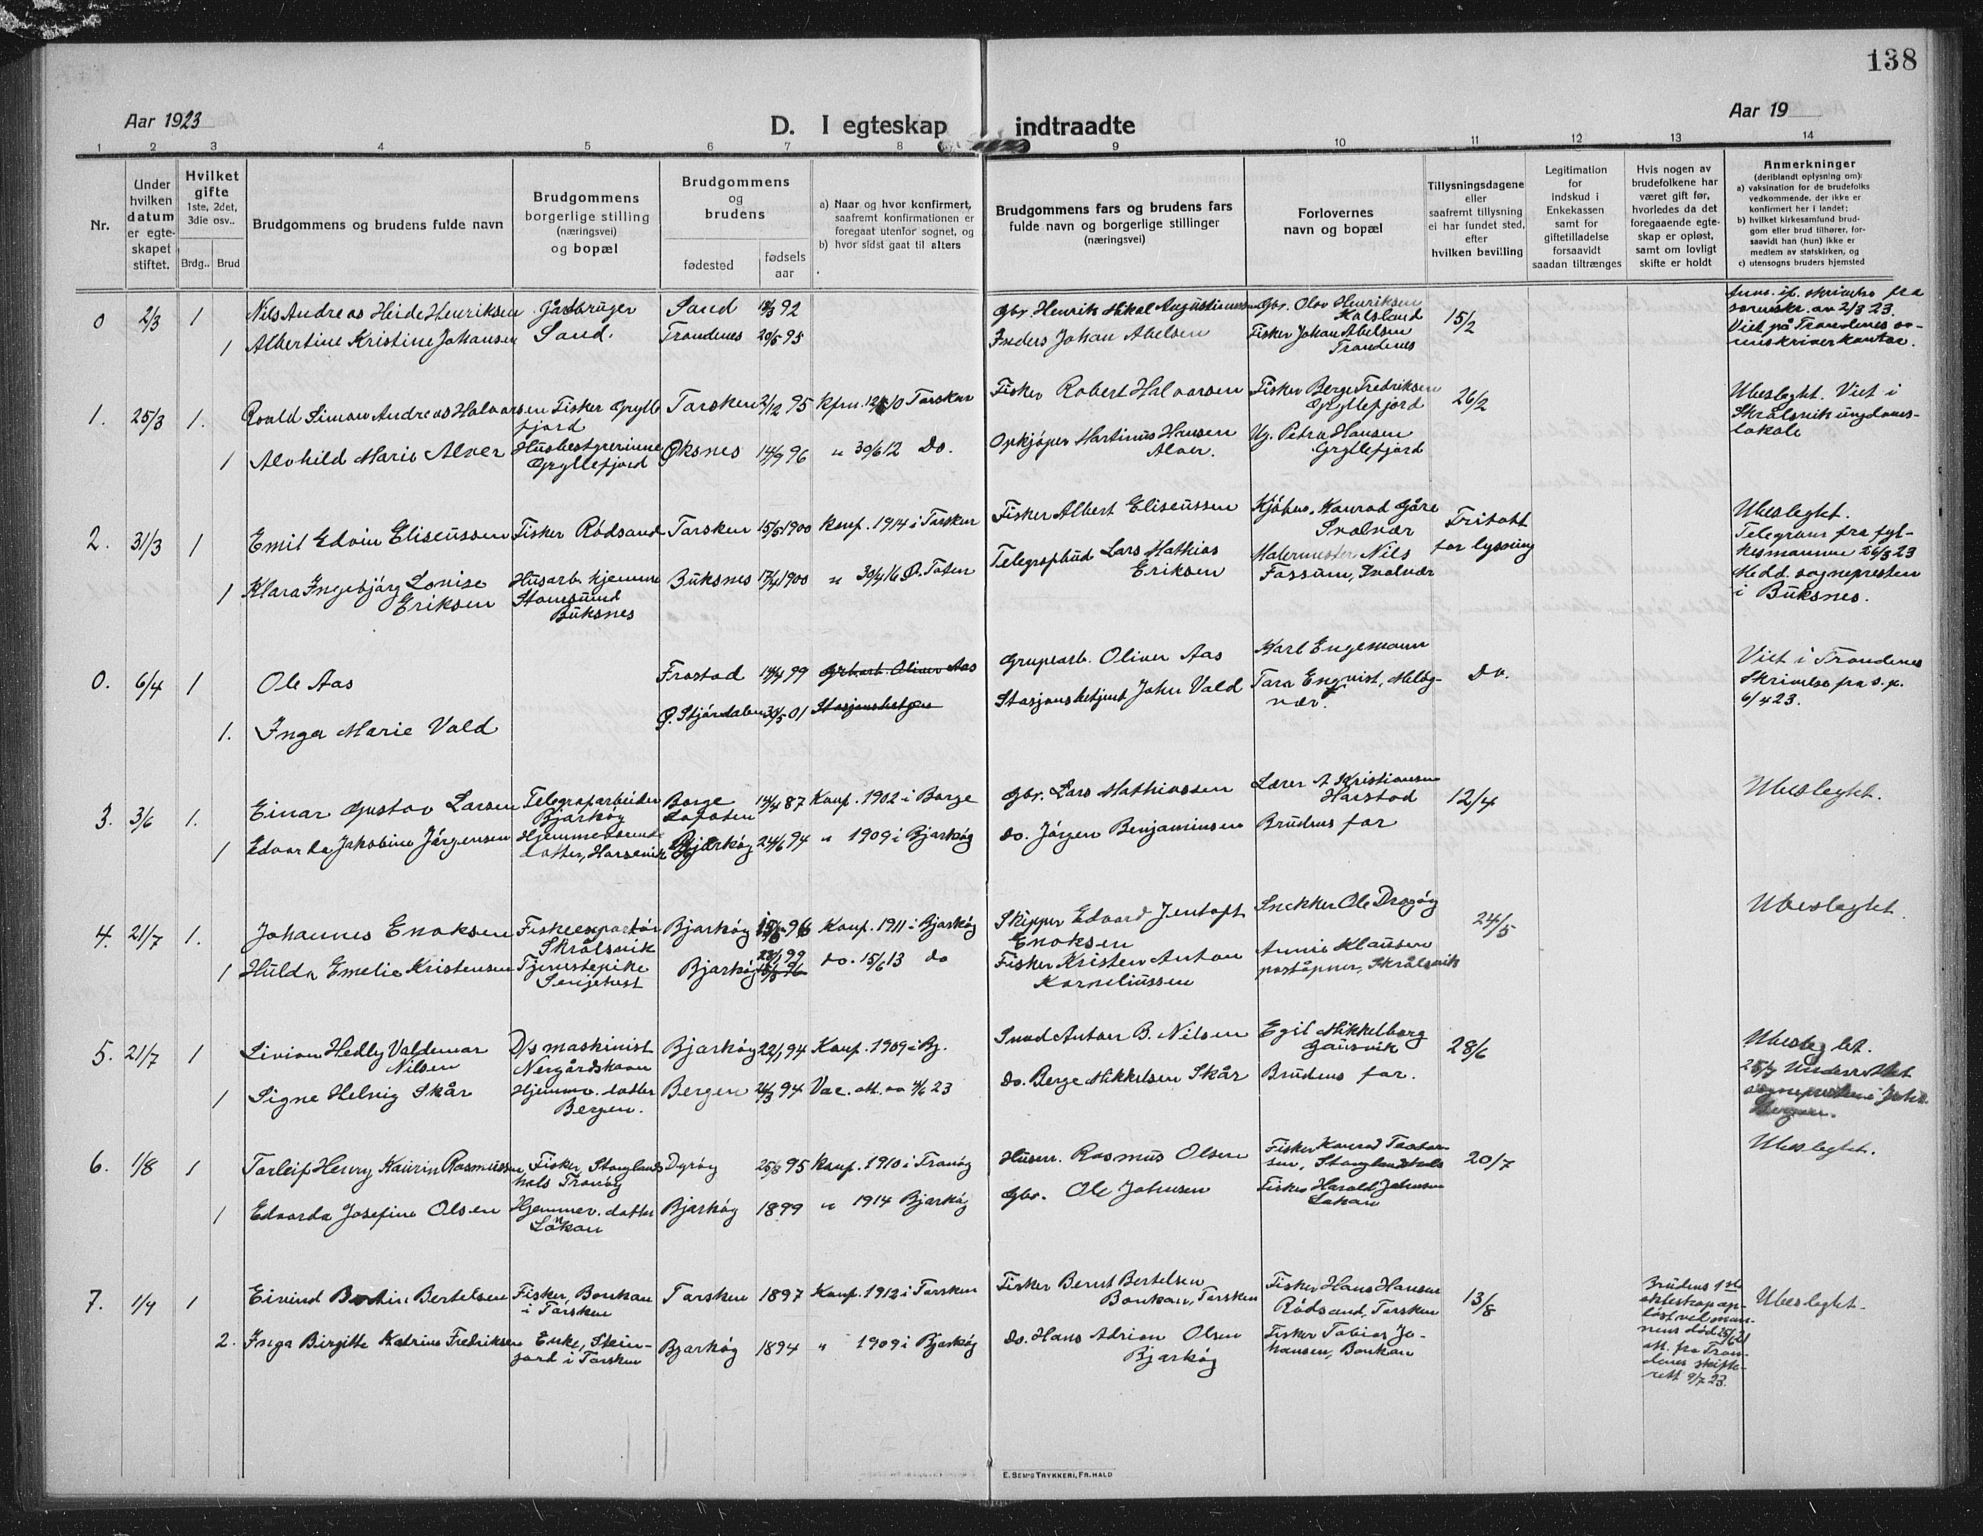 138
Aar 1923
D. I egteskap indtraadte
Aar 19
1 2 3 4 5 6 7 8 9 10 11 12 13 14
Nr.
Under hvilken datum er egteskapet stiftet.
Hvilket gifte
1ste, 2det, 3die osv..
Brdg.. Brud
Brudgommens og brudens fulde navn
Brudgommens borgerlige stilling (næringsvei) og bopæl
Brudgommens og brudens
fødested
fødsels aar
a) Naar og hvor konfirmert, saafremt konfirmationen er foregaat utenfor sognet, og
b) hvor sidst gaat til alters
Brudgommens fars og brudens fars fulde navn og borgerlige stillinger (næringsvei)
Forlovernes navn og bopæl
Tillysningsdagene eller saafremt tillysning ei har fundet sted, efter hvilken bevilling
Legitimation for indskud i Enkekassen samt for giftetilladelse forsaavidt saadan tiltrænges
Hvis nogen av brudefolkene har været gift før, hvorledes da det foregaaende egteskap er opløst, samt om lovligt skifte er holdt
Anmerkninger
(deriblandt oplysning om):
a) vaksination for de brudefolks vedkommende, der ikke er konfirmert her i landet;
b) hvilket kirkesamfund brudgom eller brud tilhører, forsaavidt han (hun) ikke er medlem av statskirken, og
c) utensogns bruders hjemsted
0 2/3 1 Nils Andreas Heide Henriksen Gårdbruger Sand Sand 92 Gbr. Henrik Mikal Augustinussen Gbr. Olav Henriksen Kalsland 15/2
1 Albertine Kristine Johansen Trondenes 20/5 95 Inders Johan Abelsen Fisker Johan Abelsen Trondenes
Anm. if. skrivelse fra sorenskr. av 2/3 23. Viet på Trondenes sorenskriverkontor.
1. 25/3 1. Roald Simon Andreas Halvorsen Fisker Gryllefjord Torsken 2/12 95 Kfm. Torsken Fisker Robert Halvorsen Fisker Berge Fredriksen Gryllefjord 26/2
1 Alvhild Marie Alver Husbestyrerinne Gryllefjord Øksnes 14/9 96 " 30/6 12 Do. Opkjøper Martinus Hansen Alver. Ug. Petra Hansen Gryllefjord
Ubeslegtet. Viet i Skrålsvik ungdomslokale
2. 31/3 1 Emil Edvin Eliseussen Fisker Rødsand Torsken 15/5 1900 Konf. 1914 i Torsken Fisker Albert Eliseussen Kjøbm. Konrad Gåre Svolvær Fritatt for lysning
1 Klara Ingebjørg Lovise Eriksen Husarb. hjemme Stamsund Buksnes Buksnes 17/4 1900 " 16 Ø. Toten Telegrafbud Lars Mathias Eriksen Malermester Nils Fossum, Svolvær
Ubeslegtet. Telegram fra fylkesmannen 26/3 23 Medd. sognepresten i Buksnes.
0. 6/4 1 Ole Aas Frostad 99 Grb.arb. Oliver Aas Grubearb. Oliver Aas Karl Engemann Do.
1. Inga Marie Vald Ø. Stjørdalen 30/5 01 Stasjonsbetjen Stasjonsbetjent John Vald Tora Enqvist,
Viet i Trondenes Skrivelse fra s.p. 6/4 23.
3. 3/6 1. Einar Gustav Larsen Telegrafarbeider Bjarkøy Borge Lofoten 14/4 87 Konf. 1902 i Borge Gbr. Lars Mathiassen Lærer A Kristiansen Harstad 12/4 Ubeslegtet.
1 Edvarda Jakobine Jørgensen Hjemmeværende datter, Bjarkøy 24/6 94 " 1909 i Bjarkøy do. Jørgen Benjaminsen Brudens far
4. 21/7 1. Johannes Enoksen Fiskeexportør Skrålsvik Bjarkøy 96 Konf. 1911 i Bjarkøy Skipper Edvard Jentoft Enoksen Snekker Ole Dragøy 24/5 Ubeslegtet.
1 Hulda Emelie Kristensen Tjenestepike Senjehest Bjarkøy 99 do. 15/6 13 do Fisker Kristen Anton Korneliussen Annie Klausen poståpner, Skrålsvik
5. 21/7 1 Livion Hedly Valdemar Nilsen D/s maskinist Nergårdshavn Bjarkøy 22/1 94 Konf. 1909 i Bj. Smed Anton B. Nilsen Egil Mikkelborg Gausvik 28/6
1 Signe Helvig Skår Hjemmev. datter Bergen. Bergen 94 Vac. att. av 23 do. Berge Mikkelsen Skår Brudens far.
Ubeslegtet. 25/7 Underrettet sognepresten i Joh. Bergen.
6. 1/8 1 Torleif Henry Kaurin Rasmussen Fisker, Stonglandshals Tranøy Dyrøy 25/8 95 Konf. 1910 i Tranøy Husm. Rasmus Olsen Fisker Konrad Stonglandshals 20/7 Ubeslegtet.
1 Edvarda Josefine Olsen Hjemmev. datter Lånkan Bjarkøy 1899 " 1914 Bjarkøy Gbr. Ole Johnsen Fisker Harald Johnsen Lakan
7. 1/9 1 Eivind Bertelsen Fisker, Bonkan i Torsken Torsken 1897 Konf. 1912 i Torsken Fisker Bernt Bertelsen Bonkan, Torsken Fisker Hans Hansen Rødsand, Torsken 13/8
2. Inga Birgitte Katrine Fredriksen Enke, Steinfjord i Torsken Bjarkøy 1894 " 1909 i Bjarkøy do. Hans Adrian Olsen Bjarkøy Fisker Tobias Johansen, Bonkan
Brudens 1ste ekteskap opløst ved mannens død 25/6 21 att. fra Trondenes skifterett 9/7 23.
Ubeslegtet.
E. SEM'S TRYKKERI, FR.HALD